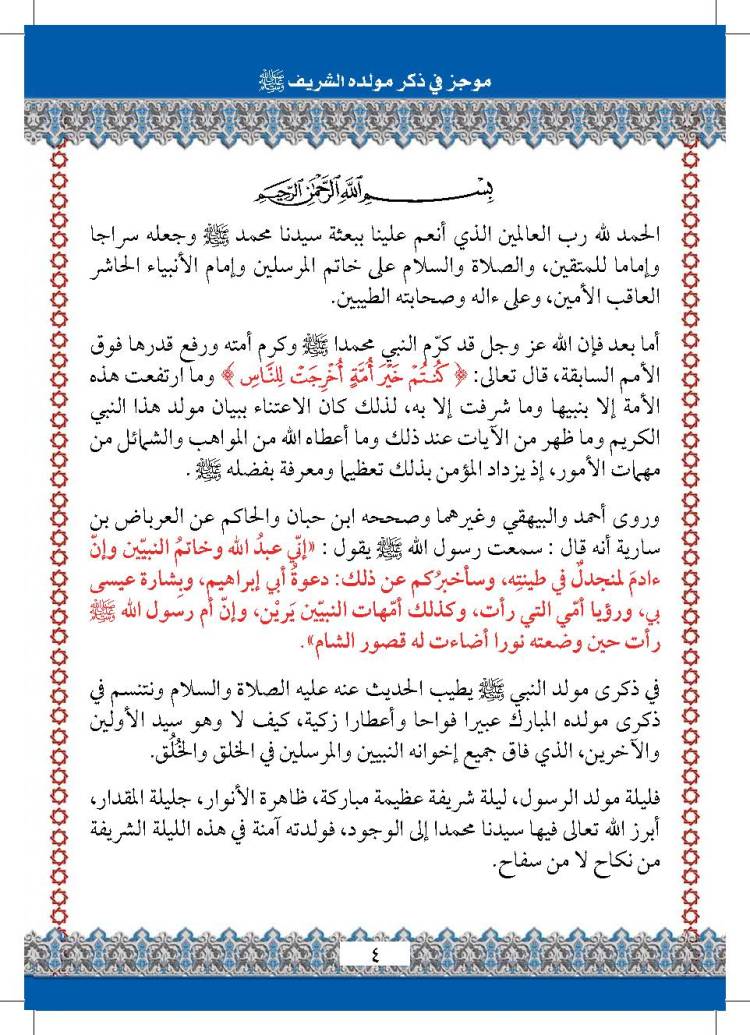 موجز في ذكر مولده الشريف ﷺ
بسم الله الرحمن الرحيم
الحمد لله رب العالمين الذي أنعم علينا ببعثة سيدنا محمد ﷺ وجعله سراجا
وإماما للمتقين، والصلاة والسلام على خاتم المرسلين وإمام الأنبياء الحاشر
العاقب الأمين، وعلى ءاله وصحابته الطيبين.
أما بعد فإن الله عز وجل قد كرّم النبي محمدا ﷺ وكرم أمته ورفع قدرها فوق
الأمم السابقة، قال تعالى: ﴿ كُنتُمْ خَيْرَ أُمَّةٍ أُخْرِجَتْ لِلنَّاسِ ﴾ وما ارتفعت هذه
الأمة إلا بنبيها وما شرفت إلا به، لذلك كان الاعتناء ببيان مولد هذا النبي
الكريم وما ظهر من الآيات عند ذلك وما أعطاه الله من المواهب والشمائل من
مهمات الأمور، إذ يزداد المؤمن بذلك تعظيما ومعرفة بفضله ﷺ .
وروى أحمد والبيهقي وغيرهما وصححه ابن حبان والحاكم عن العرباض بن
سارية أنه قال : سمعت رسول الله ﷺ يقول : «إنّي عبدُ الله وخاتمُ النبيّين وإنّ
ءادمَ لمنجدلٌ في طينتِه، وسأخبرُكم عن ذلك: دعوةُ أبي إبراهيم، وبِشارة عيسى
بي، ورؤيا أمّي التي رأت، وكذلك أمّهات النبيّين يَريْن، وإنّ أم رسول الله ﷺ
رأت حين وضعته نورا أضاءت له قصور الشام».
في ذكرى مولد النبي ﷺ يطيب الحديث عنه عليه الصلاة والسلام ونتنسم في
ذكرى مولده المبارك عبيرا فواحا وأعطارا زكية، كيف لا وهو سيد الأولين
والآخرين، الذي فاق جميع إخوانه النبيين والمرسلين في الخلق والخُلُق.
فليلة مولد الرسول، ليلة شريفة عظيمة مباركة، ظاهرة الأنوار، جليلة المقدار،
أبرز الله تعالى فيها سيدنا محمدا إلى الوجود، فولدته آمنة في هذه الليلة الشريفة
من نكاح لا من سفاح.
٤